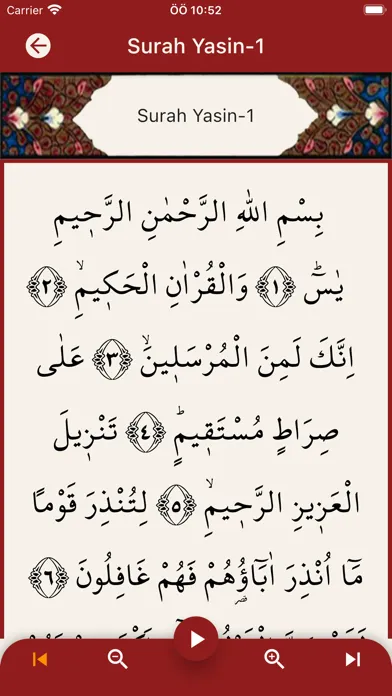 Carrier ÖÖ 10:52
Surah Yasin-1
Surah Yasin-1
بِسْمِ اللهِ الرَّحْمٰنِ الرَّح۪يمِ
يٰسٓۜ ﴿١﴾ وَالْقُرْاٰنِ الْحَك۪يمِۙ ﴿٢﴾
اِنَّكَ لَمِنَ الْمُرْسَل۪ينَۙ ﴿٣﴾ عَلٰى
صِرَاطٍ مُسْتَق۪يمٍۜ ﴿٤﴾ تَنْز۪يلَ
الْعَز۪يزِ الرَّح۪يمِۙ ﴿٥﴾ لِتُنْذِرَ قَوْمًا
مَٓا اُنْذِرَ اٰبَٓاؤُ۬هُمْ فَهُمْ غَافِلُونَ ﴿٦﴾